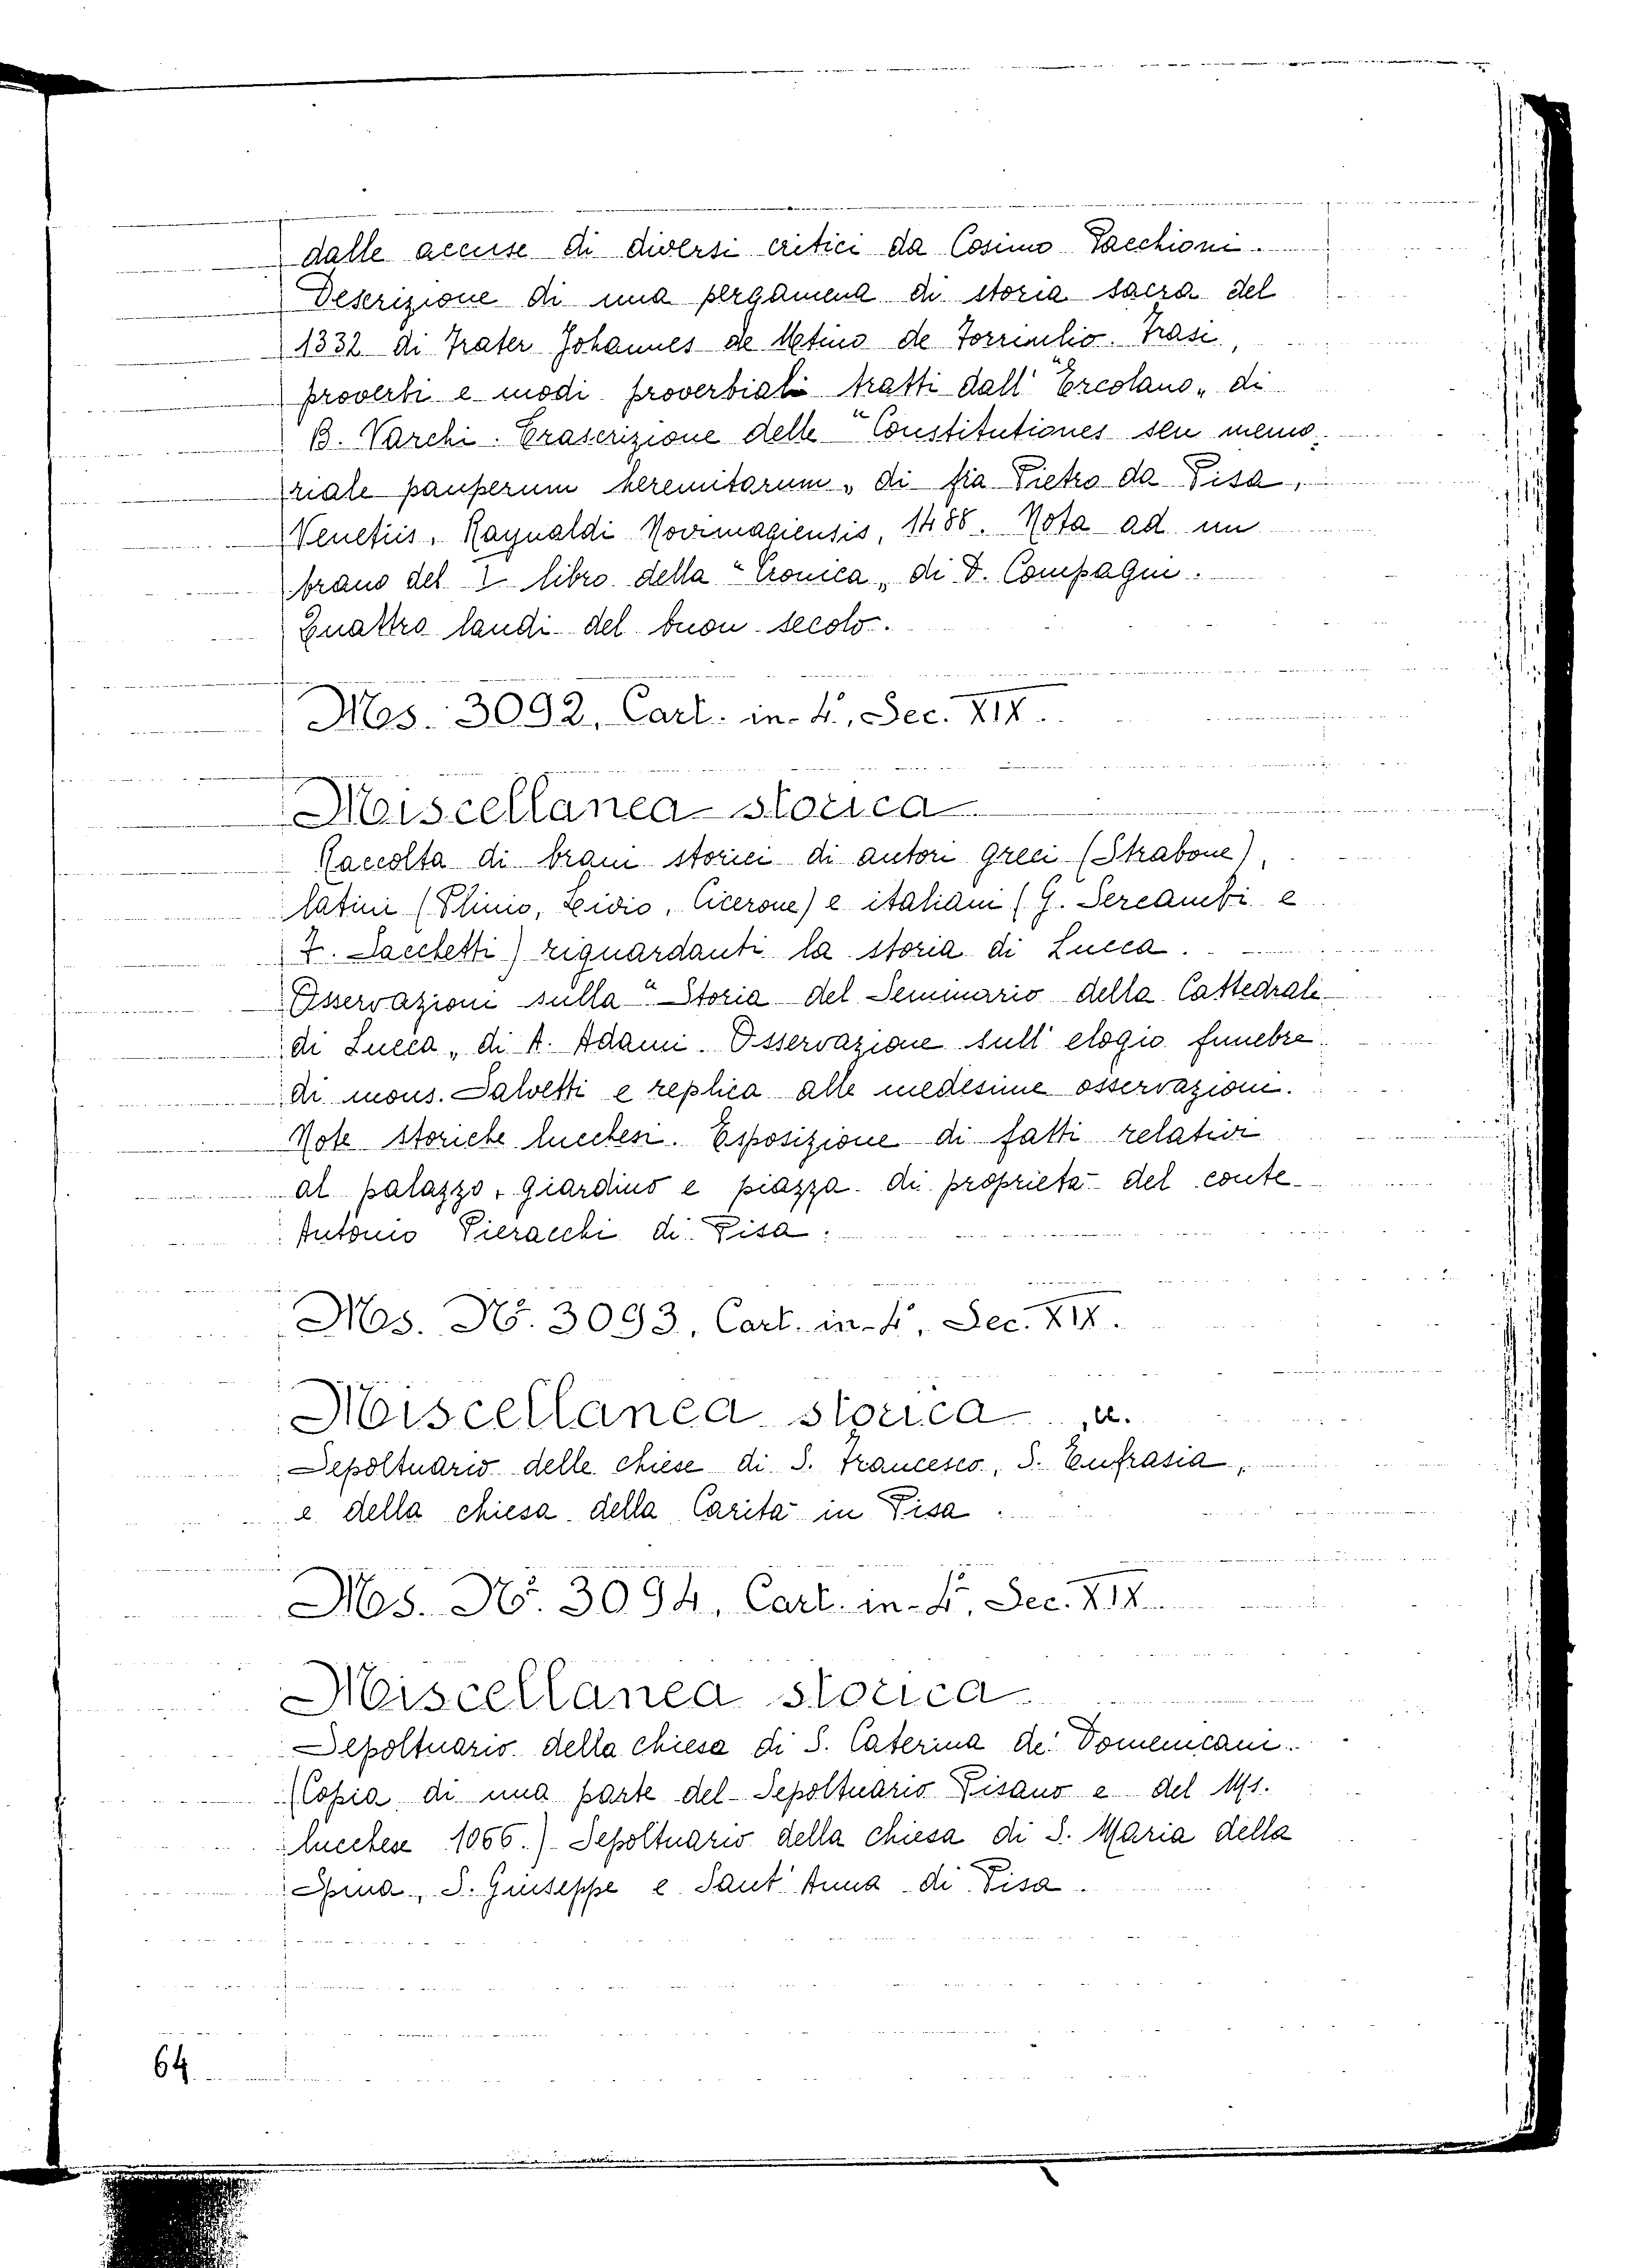 dalle accuse di diversi critici da Cosimo Pacchioni.
Descrizione di una pergamena di storia sacra del
1332 di Frater Johannes de Metino de Frasi,
proverbi e modi proverbiali tratti dall' "Ercolano„ di
B. Varchi. Trascrizione delle "Constitutiones seu memo-
riale pauperum heremitarum„ di fra Pietro da Pisa,
Venetiis, Raynaldi Novimagiensis, 1488. Nota ad un
brano del I libro della "Cronica„ di D. Compagni.
Quattro laudi del buon secolo.
Mss. 3092, Cart. in-4°, Sec. XIX.
Miscellanea storica
Raccolta di brani storici di autori greci (Strabone),
latini (Plinio, Livio, Cicerone) e italiani (G. Sercambi e
F. Sacchetti) riguardanti la storia di Lucca.
Osservazioni sulla "Storia del Seminario della Cattedrale
di Lucca„ di A. Adami. Osservazione sull' elogio funebre
di mons. Salvetti e replica alle medesime osservazioni.
Note storiche lucchesi. Esposizione di fatti relativi
al palazzo, giardino e piazza di proprietà del conte
Antonio Pieracchi di Pisa.
Mss. N°. 3093, Cart. in-4°, Sec. XIX.
Miscellanea storica
Sepoltuario delle chiese di S. Francesco, S. Eufrasia,
e della chiesa della Carità in Pisa.
Mss. N°. 3094, Cart. in-4°, Sec. XIX.
Miscellanea storica
Sepoltuario della chiesa di S. Caterina de' Domenicani.
(Copia di una parte del Sepoltuario Pisano e del Ms.
lucchese 1066.) Sepoltuario della chiesa di S. Maria della
Spina, S. Giuseppe e Sant' Anna di Pisa.
64